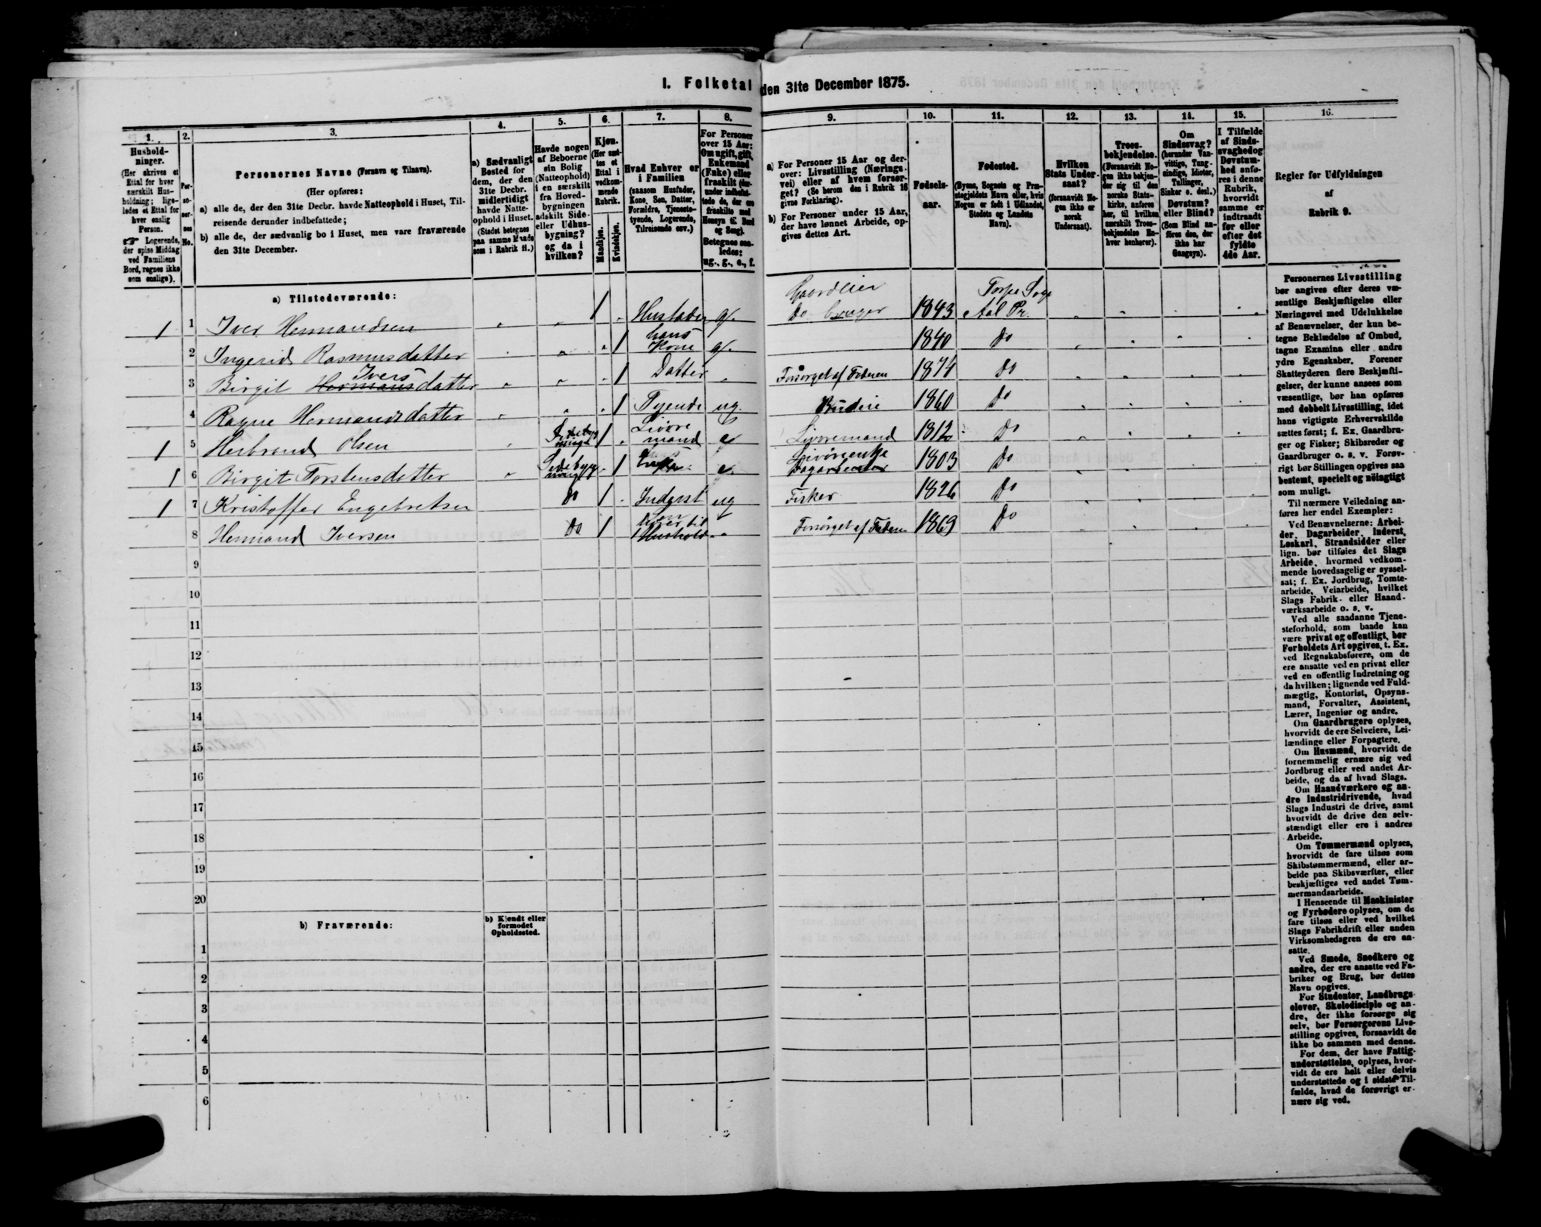 I. Folketal den 31te December 1875.
1. 2. 3. 4. 5. 6. 7. 8. 9. 10. 11. 12. 13. 14. 15. 16.
Husholdninger.
(Her skrives et
Ettal for hver
særskilt Husholdning;
ligeledes
et Ettal for
hver enslig
Person.
☞ Logerende,
der spise Middag
ved Familiens
Bord, regnes ikke
som enslige).
Personernes No.
Personernes Navne (Fornavn og Tilnavn).
(Her opføres:
a) alle de, der den 31te Decbr. havde Natteophold i Huset, Tilreisende
derunder indbefattede;
b) alle de, der sædvanlig bo i Huset, men vare fraværende
den 31te December.
a) Sædvanligt
Bosted for
dem, der den
31te Decbr.
midlertidigt
havde Natteophold
i Huset.
(Stedet betegnes
paa samme Maade
som i Rubrik 11.)
Havde nogen
af Beboerne
sin Bolig
(Natteophold)
i en særskilt
fra Hovedbygningen
adskilt Side-
eller Udhusbygning?
og da i
hvilken?
Kjøn.
(Her sættes et
Ettal i
vedkommende
Rubrik.
Mandkjøn.
Kvindekjøn.
Hvad Enhver er
i Familien
(saasom Husfader,
Kone, Søn, Datter,
Forældre, Tjenestetyende,
Logerende,
Tilreisende osv.)
For Personer
over 15 Aar:
Om ugift, gift,
Enkemand
(Enke) eller
fraskilt
Betegnes saaledes:
ug., g., e., f.
a) For Personer 15 Aar og derover:
Livsstilling (Næringsvei)
eller af hvem forsørget?
(Se herom den i Rubrik 16
givne Forklaring).
b) For Personer under 15 Aar,
der have lønnet Arbeide, opgives
dettes Art.
Fødselsaar.
Fødested.
(Byens, Sognets og Præstegjeldets
Navn eller, hvis
Nogen er født i Udlandet,
Stedets og Landets
Navn).
Hvilken
Stats Undersaat?
(forsaavidt Nogen
ikke er
norsk
Undersaat).
Troesbekjendelse.
(Forsaavidt Nogen
ikke bekjender
sig til den
norske Statskirke,
anføres
her, til hvilken
særskilt Troesbekjendelse
Enhver
henhører).
Om
Sindssvag?
(herunder Vanvittige,
Tungsindige,
Idioter,
Tullinger,
Sinker o. desl.)
Døvstum?
eller Blind?
(Som Blind anføres
den, der
ikke har
Gangsyn).
I Tilfælde
af Sindssvaghed
og
Døvstumhed
anføres
i denne
Rubrik,
hvorvidt
samme er
indtraadt
før eller
efter det
fyldte
4de Aar.
Regler for Udfyldningen
af
Rubrik 9.
a) Tilstedeværende:
1 1 Iver Hermandsen 1 Husfader g. Gaardeier Do bruger 1843 Torpe Sogn Aal Pr.
2 Ingerid Rasmusdatter 1 hans Kone g. 1840 Do
3 Birgit Ivers datter 1 Datter Forsørget af Faderen 1874 Do
4 Ragne Hermandsdatter 1 Tyende ug. Budeie 1860 Do
1 5 Herbrand Olsen Sidebygning 1 Livøremand e Livøremand 1812 Do
1 6 Birgit Torstensdatter Sidebygning 1 e. 1803 Do
1 7 Kristoffer Engebretsen Do 1 Inderst ug Fisker 1826 Do
8 Hermand Iversen Do 1 Søn hører til Hushold. Forsørget af Faderen 1869 Do
9
10
11
12
13
14
15
16
17
18
19
20
b) Fraværende:
b) Kjendt eller
formodet
Opholdssted.
1
2
3
4
5
6
Personernes Livsstilling
bør angives efter deres væsentlige
Beskjæftigelse eller
Næringsvei med Udelukkelse
af Benævnelser, der kun betegne
Beklædelse af Ombud,
tagne Examina eller andre
ydre Egenskaber. Forener
Skatteyderen flere Beskjæftigelser,
der kunne ansees som
væsentlige, bør han opføres
med dobbelt Livsstilling, idet
hans vigtigste Erhvervskilde
sættes først; f. Ex. Gaardbruger
og Fisker; Skibsreder og
Gaardbruger o. s. v. Forøvrigt
bør Stillingen opgives saa
bestemt, specielt og nøiagtigt
som muligt.
Til nærmere Veiledning anføres
her endel Exempler:
Ved Benævnelserne: Arbeider,
Dagarbeider, Inderst,
Løskarl, Strandsidder eller
lign. bør tilføies det Slags
Arbeide, hvormed vedkommende
hovedsagelig er sysselsat;
f. Ex. Jordbrug, Tomtearbeide,
Veiarbeide, hvilket
Slags Fabrik- eller Haandværksarbeide
o. s. v.
Ved alle saadanne Tjenesteforhold,
som baade kan
være privat og offentligt, bør
Forholdets Art opgives, t. Ex.
ved Regnskabsførere, om de
ere ansatte ved en privat eller
ved en offentlig Indretning og
da hvilken; lignende ved Fuldmægtig,
Kontorist, Opsynsmand,
Forvalter, Assistent,
Lærer, Ingeniør og andre.
Om Gaardbrugere oplyses,
hvorvidt de ere Selveiere, Leilændinge
eller Forpagtere.
Om Husmænd, hvorvidt de
fornemmelig ernære sig ved
Jordbrug eller ved andet Arbeide,
og da af hvad Slags.
Om Haandværkere og andre
Industridrivende, hvad
Slags Industri de drive, samt
hvorvidt de drive den selvstændigt
eller ere i andres
Arbeide.
Om Tømmermænd oplyses,
hvorvidt de fare tilsøs som
Skibstømmermænd, eller arbeide
paa Skibsværfter, eller
beskjæftiges ved andet Tømmermandsarbeide.
I Henseende til Maskinister
og Fyrbødere oplyses, om de
fare tilsøs eller ved hvilket
Slags Fabrikdrift eller anden
Virksomhedsgren de ere ansatte.
Ved Smede, Snedkere og
andre, der ere ansatte ved Fabriker
og Brug, bør dettes
Navn opgives.
For Studenter, Landbrugselever,
Skoledisciple og andre,
der ikke forsørge sig
selv, bør Forsørgerens Livsstilling
opgives, forsaavidt de
ikke bo sammen med denne.
For dem, der have Fattigunderstøttelse,
oplyses, hvorvidt
de ere helt eller delvis
understøttede og i sidste Tilfælde,
hvad de forøvrigt ernære
sig ved.